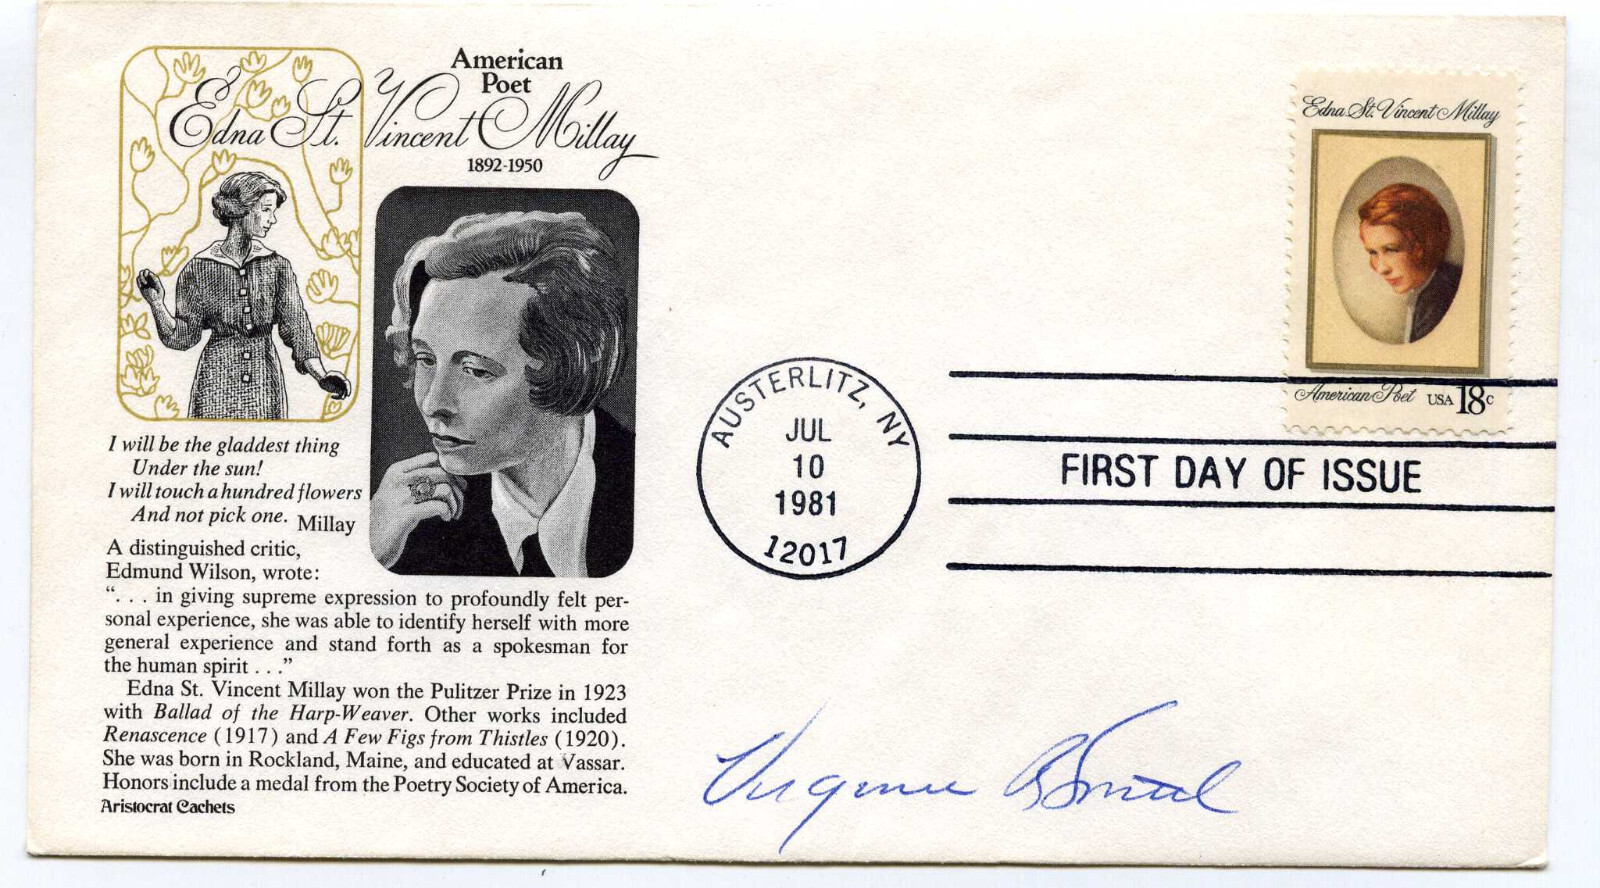 American
Poet
Edna St. Vincent Millay
1892-1950
I will be the gladdest thing
Under the sun!
I will touch a hundred flowers
And not pick one. Millay
A distinguished critic,
Edmund Wilson, wrote:
“. . . in giving supreme expression to profoundly felt per-
sonal experience, she was able to identify herself with more
general experience and stand forth as a spokesman for
the human spirit . . .”
Edna St. Vincent Millay won the Pulitzer Prize in 1923
with Ballad of the Harp-Weaver. Other works included
Renascence (1917) and A Few Figs from Thistles (1920).
She was born in Rockland, Maine, and educated at Vassar.
Honors include a medal from the Poetry Society of America.
Aristocrat Cachets
Edna St. Vincent Millay
American Poet USA 18c
AUSTERLITZ, NY
JUL
10
1981
12017
FIRST DAY OF ISSUE
Virginia